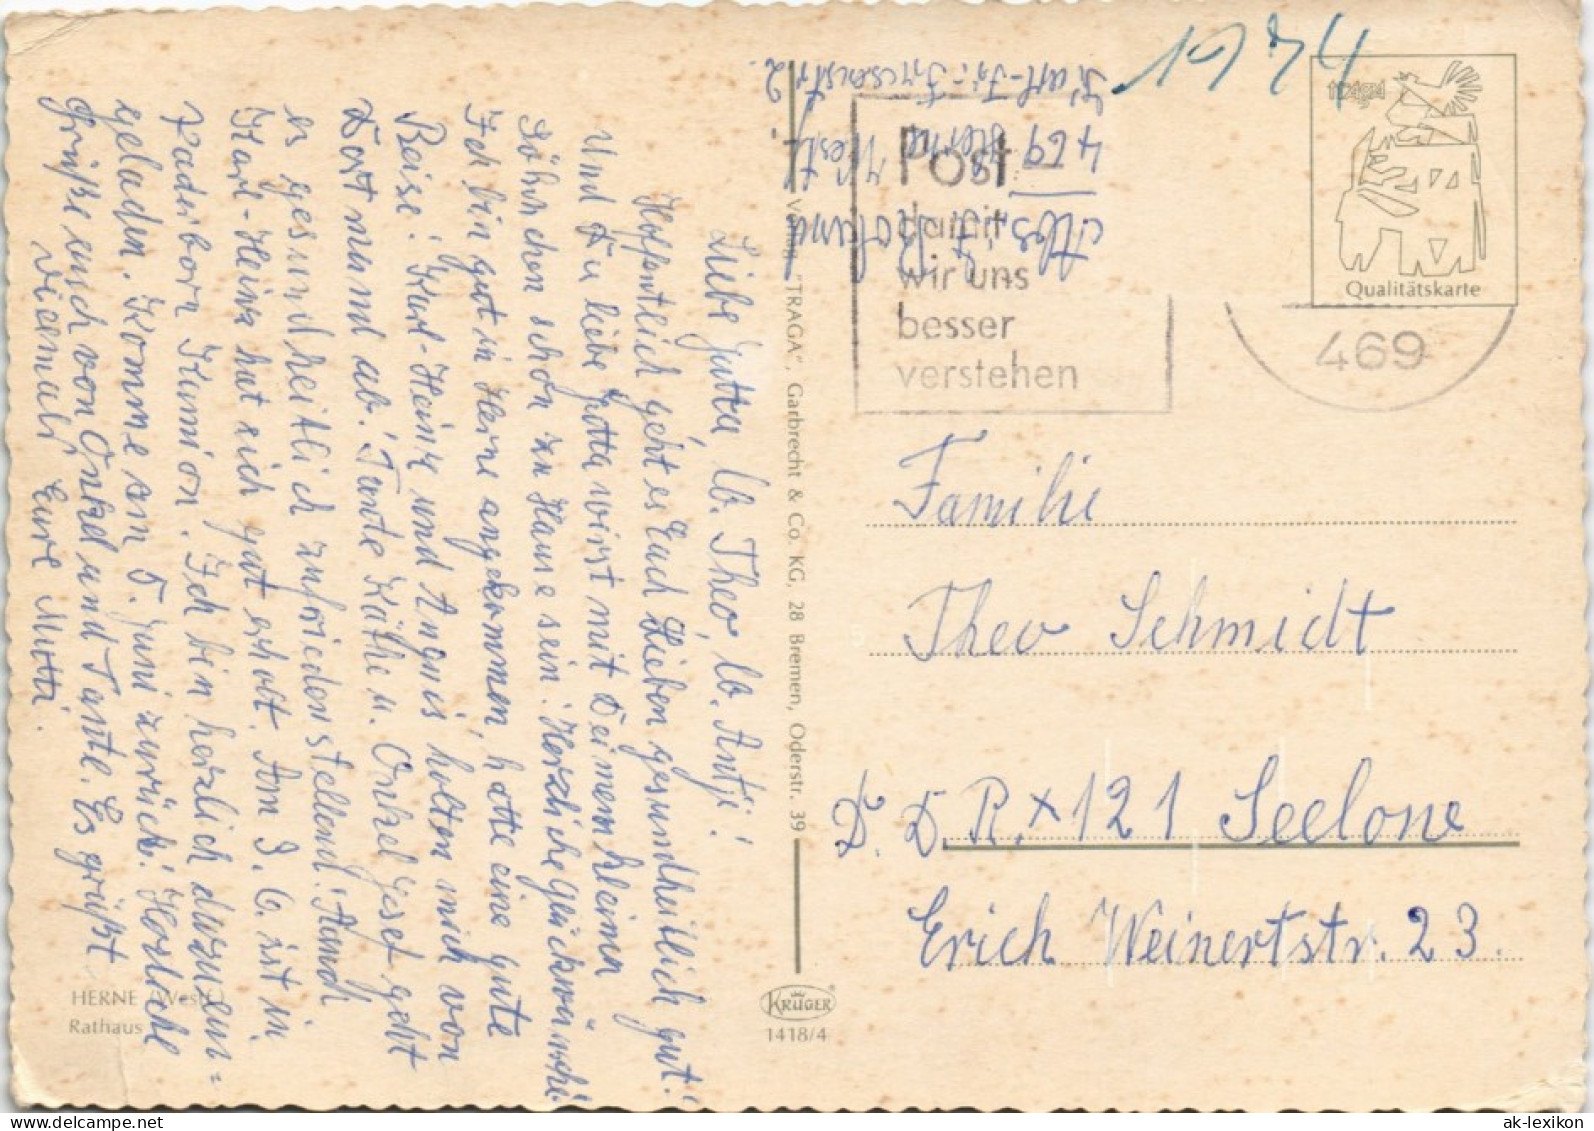 1974
Abs. F. Roland
469 Herne Westf.
Karl-Fr.-Friesenstr. 2.
Post
damit
wir uns
besser
verstehen
469
traga
Qualitätskarte
Liebe Jutta, lb. Theo, lb. Antje!
Hoffentlich geht es Euch Lieben gesundheitlich gut!
Und Du liebe Jutta wirst mit Deinem kleinen
Söhnchen schon zu Hause sein. Herzliche Glückwünsche
Ich bin gut in Herne angekommen, hatte eine gute
Reise! Karl-Heinz und Angnis holten mich von
Dortmund ab! Tante Käthe u. Onkel Josef geht
es gesundheitlich zufriedenstellend. Auch
Karl-Heinz hat sich gut erholt. Am 3. 6. ist in
Paderborn Kumion. Ich bin herzlich dazu ein=
geladen. Komme am 5. Juni zurück! Herzliche
Grüße auch von Onkel und Tante. Es grüßt
vielmals Eure Mutti.
HERNE (Westf.)
Rathaus
Verlag "TRAGA", Garbrecht & Co. KG, 28 Bremen, Oderstr. 39
KRÜGER
1418/4
Familie
Theo Schmidt
D. D. R. x 121 Seelow
Erich Weinertstr. 23.
www.ak-ansichtskarten.de
ak-lexikon